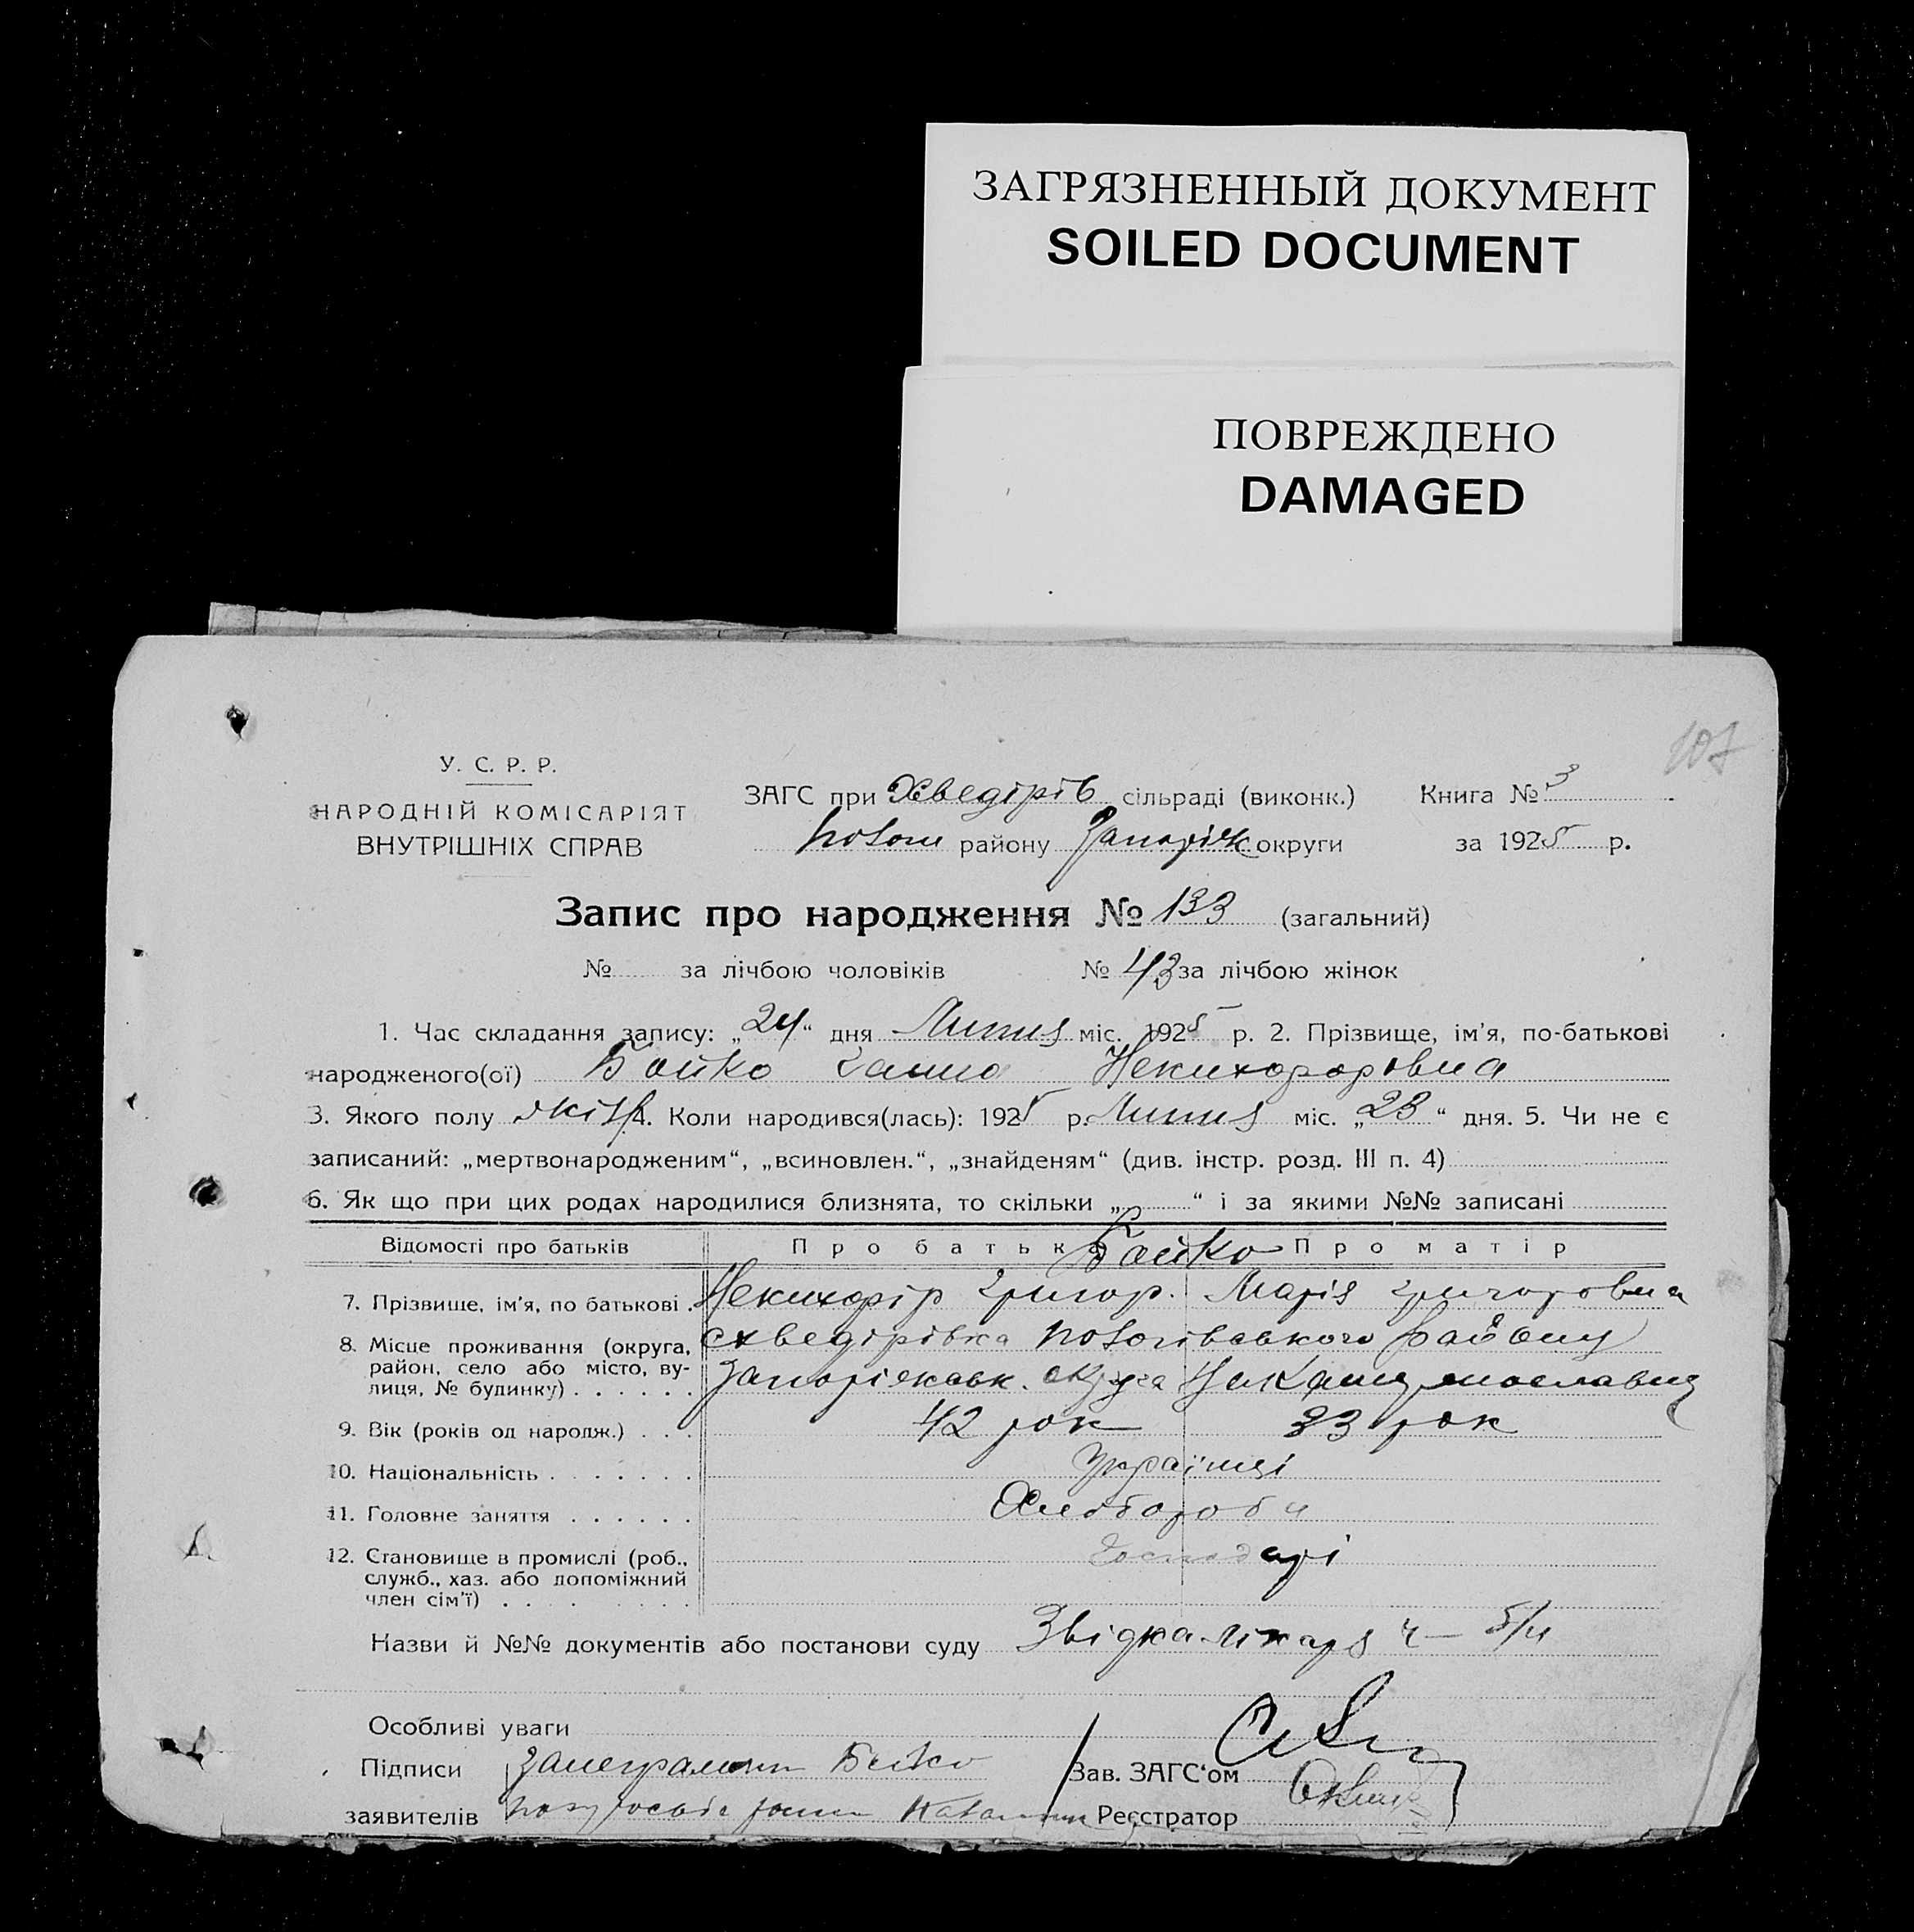 ЗАГРЯЗНЕННЫЙ ДОКУМЕНТ
SOILED DOCUMENT
ПОВРЕЖДЕНО
DAMAGED
107
У. С. Р. Р.
НАРОДНІЙ КОМІСАРІЯТ
ВНУТРІШНІХ СПРАВ
ЗАГС при Хведірів сільраді (виконк.) Книга № 3
району Запоріж округи за 1925 р.
Запис про народження № 133 (загальний)
№ за лічбою чоловіків № 43 за лічбою жінок
1. Час складання запису: „24“ дня Липня міс. 1925 р. 2. Прізвище, ім'я, по-батькові
народженого(ої) Бойко Ганна Некихоровна
3. Якого полу жіноч 4. Коли народився(лась): 1925 р. Липня міс. „23“ дня. 5. Чи не є
записаний: „мертвонародженим“, „всиновлен.“, „знайденям“ (див. інстр. розд. III п. 4)
6. Як що при цих родах народилися близнята, то скільки „ “ і за якими №№ записані
Відомості про батьків Про батька Про матір
Бойко
7. Прізвище, ім'я, по батькові Некихфір Григор. Марія Григоровна
8. Місце проживання (округа, район, село або місто, вулиця, № будинку) с Хведірівка району
Запоріжськ. округа
9. Вік (років од народж.) 42 рок 33 рок
10. Національність Українці
11. Головне заняття Хлібороби
12. Становище в промислі (роб., служб., хаз. або допоміжний член сім'ї) Господарі
Назви й №№ документів або постанови суду Звідка лікаря ч — б/н
Особливі уваги
Підписи Бойко Зав. ЗАГС'ом
заявителів Реєстратор